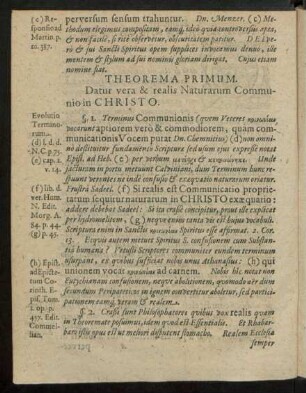 (c) Re-
sponsad
Martin p.
m. 587.
perversum sensum trahuntur. Dn. Menzer. (c) Me-
thodum elegimus compositam, eamq; ideò quia controversus apex,
& non facilè, si ritè observetur, obscuritatem patitur. DEI pe-
rò & sui Sancti Spiritus opem supplices invocamus denuò, ille
mentem & stylum ad sui nominis gloriam dirigat. Cujus etiam
nomine fiat.
THEOREMA PRIMUM.
Datur vera & realis Naturarum Commu-
nio in CHRISTO.
Evolutio
Termino-
rum.
(d) l. d. d.
N.C. p. 75.
(e) cap. 2.
v. 14.
(f) lib. d.
ver. Hom.
N. Edit.
Morg. A.
84. p. 44.
(g) p. 45.
(h) Epist.
ad Epict-
tum Co-
rinth. E-
pisc. Tom.
1. op. p.
457. Edit.
Commel-
lian.
§. 1. Terminus Communionis (quem Veteres
vocarunt aptiorem verò & commodiorem, quam com-
municationis Vocem putat Dn. Chemnitius) (d) non omni-
nò destituitur fundamento Scripturæ sed usum ejus expressè notat
Epist. ad Heb. (e) per verbum Unde
factum in portu metuunt Calviniani, dum Terminum hunc re-
spuunt veremini ne inde confusio & exæquatio naturarum oriatur.
Frustrà Sadeel. (f) Si realis est Communicatio proprie-
tatum sequitur naturarum in CHRISTO exæquatio:
addere debebat Sadeel: Si ita crassè concipitur, prout ille explicat
per solam similem, (g) neque enim tanta vis est hujus vocabuli.
Scriptura enim in Sanctis Spiritus esse affirmat. 2. Cor.
13. Ecquis autem metuet Spiritus S. confusionem cum Substan-
tiâ humanâ? Petiuli Scriptores communiter eundem terminum
usurpant, ex quibus sufficiat nobis unus Athanasius: (h) qui
unionem vocat ad carnem. Nobis hic notat non
Eutychianam confusionem, neque abolitionem, quomodo aër dum
secundum Peripateticos in ignem convertitur aboletur, sed partici-
pationem eamq; veram & realem.
§. 2. Crassi sunt Philosophatores quibus vox realis quam
in Theoremate posuimus, idem quod est Essentialis. Et Rhabar-
bari istis opus est ut melius disponent stomacho. Realem Ecclesia
semper